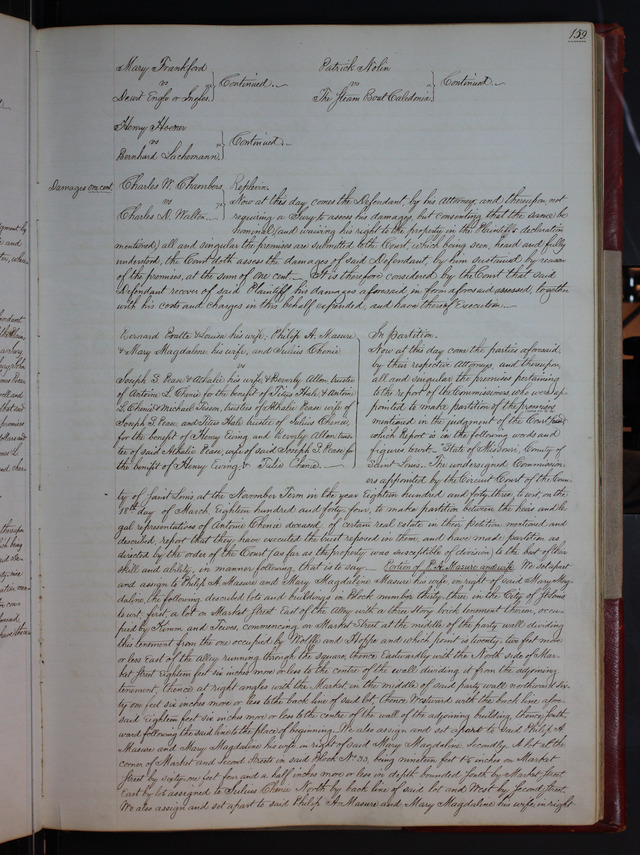 159
Mary Frankford
vs
Dewit Engle or Ingles.
Continued.
Patrick Nolin
vs
The Steam Boat Caledonia
Continued.
Henry Hoover
vs
Bernhard Lachemann
Continued.
Damages one cent
Charles W. Chambers
vs
Charles D. Walton
Replevin.
Now at this day comes the Defendant, by his attorney, and thereupon not
requiring a Jury to assess his damages, but consenting that the same be
nominal, and waiving his right to the property, in the Plaintiff's declaration
mentioned, all and singular the premises are submitted to the Court, which being seen, heard and fully
understood, the Court doth assess the damages of said Defendant, by him sustained by reason
of the premises, at the sum of one cent. It is therefore considered by the Court that said
Defendant recover of said Plaintiff his damages aforesaid in form aforesaid assessed, together
with his costs and charges in this behalf expended, and have thereof Execution.
& Louise his wife, Philip A. Masure
& Mary Magdaline his wife, and Julius Chenie
vs
Joseph S. Pease & Athalie his wife, & Beverly Allen trustee
of Antoine L. Chenie for the benefit of Titus Hale & Antoine
L. Chenie & Michael trustees of Athalie Pease wife of
Joseph S. Pease and Titus Hale trustee of Julius Chenie,
for the benefit of Henry Ewing and Beverly Allen trus-
tee of said Athalie Pease, wife of said Joseph S. Pease for
the benefit of Henry Ewing & Jules Chenie.
In Partition.
Now at this day come the parties aforesaid,
by their respective Attorneys, and thereupon
all and singular the premises pertaining
to the report of the Commissioners who were ap-
pointed to make partition of the premises
mentioned in the judgment of the Court
which Report is in the following words and
figures to wit: State of Missouri, County of
Saint Louis. The undersigned Commission-
ers appointed by the Circuit Court of the Coun-
ty of Saint Louis at the November Term in the year Eighteen hundred and forty three, to wit, on the
18th day of March Eighteen hundred and forty four, to make partition between the heirs and le-
gal representatives of Antoine Chenie deceased, of certain real estate in their petition mentioned and
described, report that they have executed the trust reposed in them, and have made partition as
directed by the order of the Court (as far as the property was susceptible of division) to the best of their
skill and ability, in manner following that is to say Portion of P. A. Masure and wife. We set apart
and assign to Philip A. Masure and Mary Magdaline Masure his wife, in right of said Mary Mag-
daline, the following described lots and buildings in Block number thirty three in the City of St Louis
to wit, first, a lot on Market Street East of the alley with a three story brick tenement thereon, occu-
pied by Kimm and commencing on Market Street at the middle of the party wall dividing
this tenement from the one occupied by Wolff and Hoppe and which point is twenty two feet more
or less East of the alley running through the square, thence Eastwardly with the North side of Mar-
ket Street Eighteen feet six inches more or less to the centre of the wall dividing it from the adjoining
tenement, thence at right angles with the Market in the middle of said party wall northward six-
ty one feet six inches more or less to the back line of said lot, thence Westward with the back line afore-
said Eighteen feet six inches more or less to the centre of the wall of the adjoining building, thence South-
ward following the said line to the place of beginning. We also assign and set apart to said Philip A.
Masure and Mary Magdaline his wife in right of said Mary Magdaline Secondly, A lot at the
corner of Market and Second Streets in said Block No 33, being nineteen feet inches on Market
Street by sixty one feet four and a half inches more or less in depth bounded South by Market Street,
East by lot assigned to Julius Chenie North by back line of said lot and West by Second Street.
We also assign and set apart to said Philip A. Masure and Mary Magdaline his wife, in right